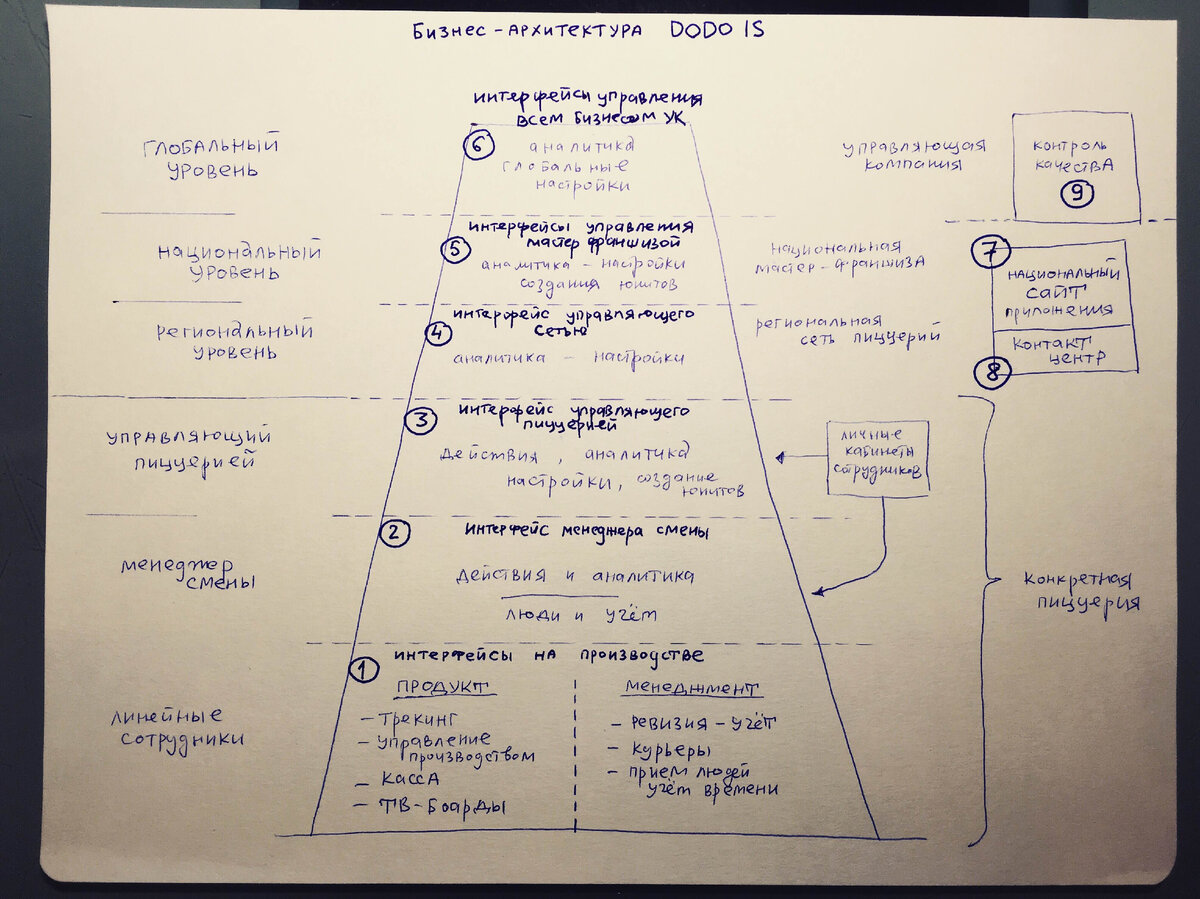 БИЗНЕС-АРХИТЕКТУРА DODO IS
ИНТЕРФЕЙСЫ УПРАВЛЕНИЯ
ВСЕМ БИЗНЕСОМ УК
ГЛОБАЛЬНЫЙ
УРОВЕНЬ
6
аналитика
глобальные
настройки
УПРАВЛЯЮЩАЯ
КОМПАНИЯ
КОНТРОЛЬ
КАЧЕСТВА
9
НАЦИОНАЛЬНЫЙ
УРОВЕНЬ
5
ИНТЕРФЕЙСЫ УПРАВЛЕНИЯ
МАСТЕР ФРАНШИЗОЙ
аналитика - настройки
создания юнитов
НАЦИОНАЛЬНАЯ
МАСТЕР-ФРАНШИЗА
7
НАЦИОНАЛЬНЫЙ
САЙТ
ПРИЛОЖЕНИЯ
КОНТАКТ
ЦЕНТР
8
РЕГИОНАЛЬНЫЙ
УРОВЕНЬ
4
ИНТЕРФЕЙС УПРАВЛЯЮЩЕГО
СЕТЬЮ
аналитика - настройки
РЕГИОНАЛЬНАЯ
СЕТЬ ПИЦЦЕРИЙ
УПРАВЛЯЮЩИЙ
ПИЦЦЕРИЕЙ
3
ИНТЕРФЕЙС УПРАВЛЯЮЩЕГО
ПИЦЦЕРИЕЙ
Действия, аналитика
настройки, создание
юнитов
ЛИЧНЫЕ
КАБИНЕТЫ
СОТРУДНИКОВ
МЕНЕДЖЕР
СМЕНЫ
2
ИНТЕРФЕЙС МЕНЕДЖЕРА СМЕНЫ
Действия и аналитика
ЛЮДИ И УЧЁТ
КОНКРЕТНАЯ
ПИЦЦЕРИЯ
ЛИНЕЙНЫЕ
СОТРУДНИКИ
1
ИНТЕРФЕЙСЫ НА ПРОИЗВОДСТВЕ
ПРОДУКТ
- ТРЕКИНГ
- УПРАВЛЕНИЕ
ПРОИЗВОДСТВОМ
- КАССА
- ТВ-БОАРДЫ
МЕНЕДЖМЕНТ
- РЕВИЗИЯ - УЧЁТ
- КУРЬЕРЫ
- ПРИЕМ ЛЮДЕЙ
УЧЁТ ВРЕМЕНИ